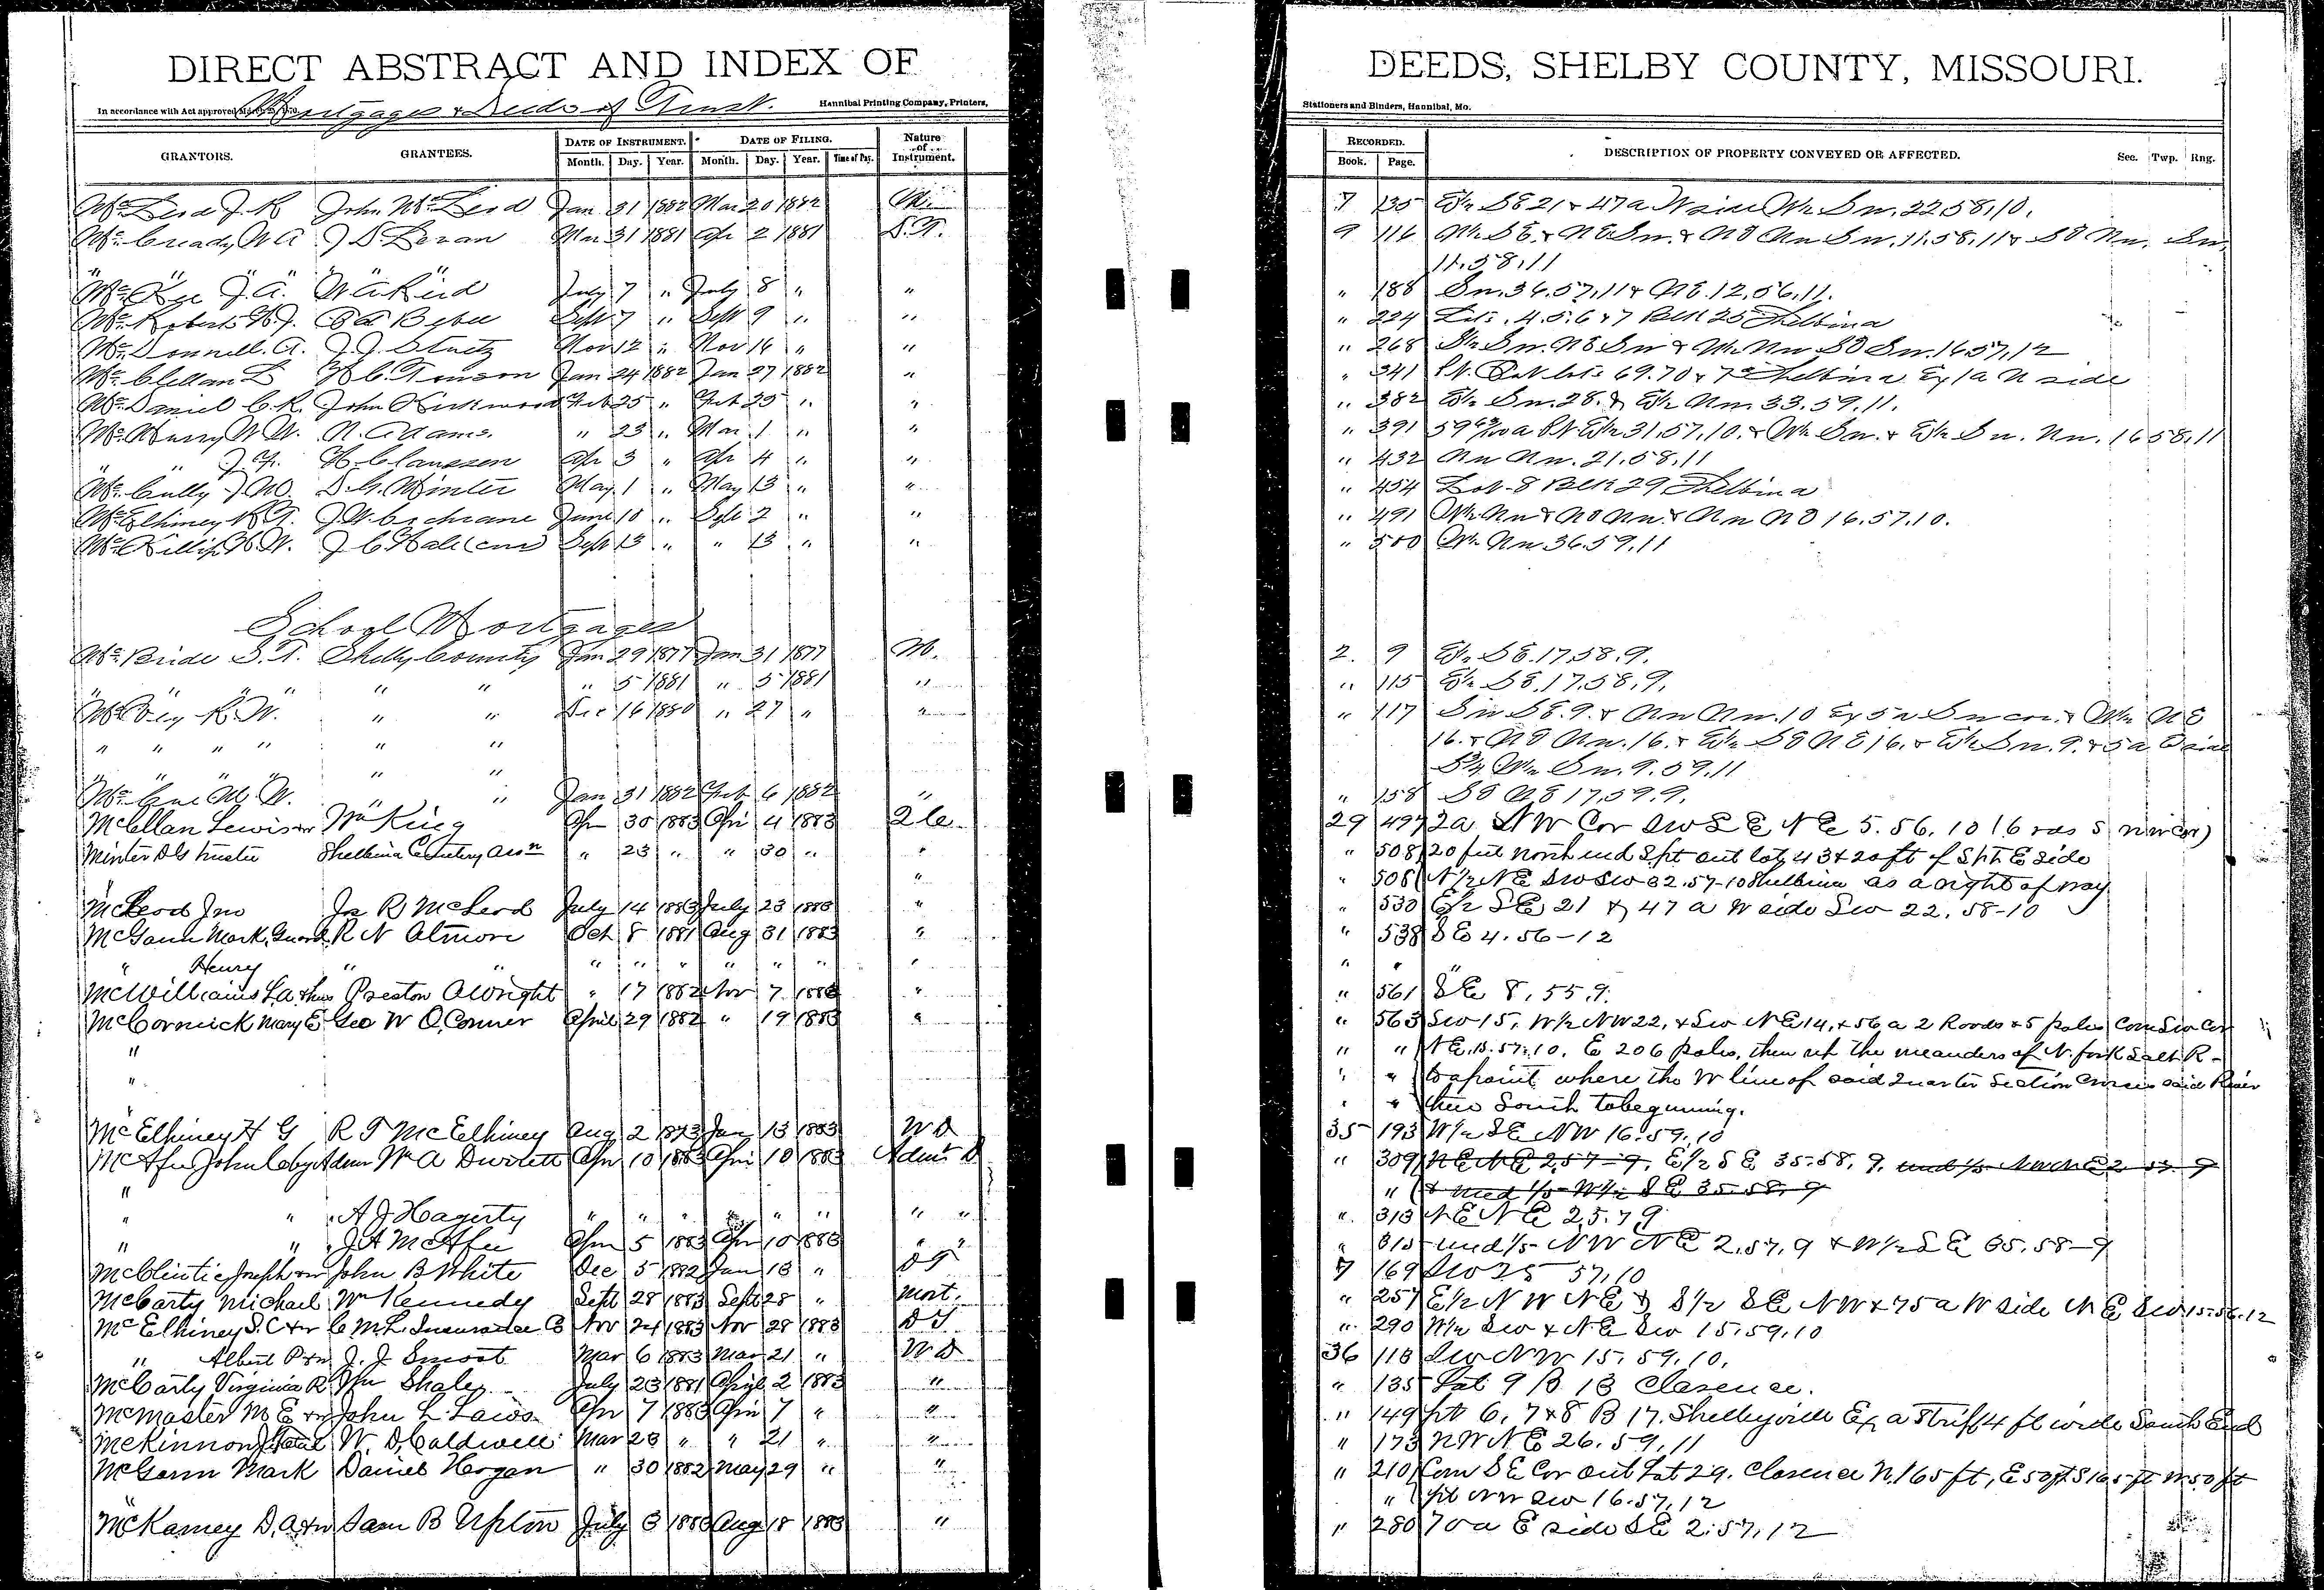 DIRECT ABSTRACT AND INDEX OF
DEEDS, SHELBY COUNTY, MISSOURI.
In accordance with Act approved
Mortgages & Deeds of Trust.
Hannibal Printing Company, Printers,
Stationers and Binders, Hannibal, Mo.
GRANTORS. GRANTEES. DATE OF INSTRUMENT. DATE OF FILING. Nature of Instrument. RECORDED. DESCRIPTION OF PROPERTY CONVEYED OR AFFECTED. Sec. Twp. Rng.
Month. Day. Year. Month. Day. Year. Book. Page.
McLeod J. R John McLeod Jan 31 1882 Mar 20 1882 7 135 E½ SE 21 & 47a W side W½ Sw. 22.58.10.
McCready W A J D. Mar 31 1881 Apr 2 1881 D.T. 9 116 W½ SE. & NE Sw. & NE Nw Sw. 11.58.11 & SE Nw. Sw.
11.58.11
J. A. July 7 " July 8 " " " 188 Sw. 36.57.11 & NE. 12.56.11.
McRoberts Sept 7 " Sept 9 " " " 224 Lots. 4.5.6 & 7 Blk 25 Shelbina
McDonnell. A. J. J. Nov 12 " Nov 16 " " " 268 Sw. NE Sw & W½ Nw SE Sw. 16 57.12
McClellan L Jan 24 1882 Jan 27 1882 " " 341 Pt. Out lots 69.70 & Shelbina Ex 1a N side
McDaniel C. R. John Kirkwood Feb 25 " Feb 25 " " " 382 E½ Sw. 28. & E½ Nw. 33.59.11.
McMurry W W. N. Adams. " 23 " Mar. 1 " " " 391 Pt E½ 31.57.10. & W½ Sw. & E½ Sw. Nw. 16 58.11
" H. Claussen Apr 3 " Apr 4 " " " 432 Nw Nw. 21.58.11
McCully J M. D. G. Minter May 1 " May 13 " " " 454 Lot. 8 Blk 29 Shelbina
McElhiney R. T. J W. Cochrane June 10 " Sept 2 " " " 491 W½ Nw & NE Nw & Nw NE 16.57.10.
McKillip H W. J C Hale Sept 13 " " 13 " " " 500 W½ Nw 36.59.11
School Mortgages
McBride S. T. Shelby County Jan 29 1877 Jan 31 1877 M. 2. 9 E½ SE. 17.58.9.
" " " " " " 5 1881 " 5 1881 " " 115 E½ SE. 17.58.9.
R. W. " " Dec 16 1880 " 27 " " " 117 Sw SE. 9. & Nw Nw. 10 Ex 5a Sw cor. & W½ NE
" " " " " " 16. & NE Nw. 16. & E½ SE NE 16. & E½ Sw. 9. & 5a E side
" " S¾ W½ Sw. 9.59.11
McCue M. W. " " Jan 31 1882 Feb 6 1882 " " 158 SE NE 17.59.9.
McClellan Lewis & w Wm King Apr 30 1883 Apri 4 1883 29 497 2a NW Cor SW SE NE 5. 56. 10
Minter D G trustee Shelbina Cemetery Assn " 23 " " 30 " " " 508 20 feet north end out lot 43 & 20ft of E side
" " 508 N½ NE SW SW 32.57-10 Shelbina as a right of way
McLeod Jno Jas R McLeod July 14 1883 July 23 1883 " " 530 E½ SE 21 & 47 a W side Sw 22. 58-10
McGann Mark, Guard R N Atmore Oct 8 1881 Aug 31 1883 " " 538 SE 4. 56-12
" Henry " " " " " " " " " " "
McWilliams L.A. & hus Preston A Wright " 17 1882 Nov 7 1883 " " 561 SE 8. 55.9.
McCormick Mary E Geo W O.Conner April 29 1882 " 19 1883 " " 563 Sw 15, W½ NW 22, & Sw NE 14, & 56 a 2 Roods & 5 poles Com Sw Cor
" " " NE. 15.57.10. E 206 poles, then up the meanders of N. fork Salt R
" " " to a point where the W line of said Quarter Section Crosses said River
" " thence South to beginning.
McElhiney H G R T McElhiney Aug 2 1873 Jan 13 1883 WD 35 193 W½ SE NW 16.59.10
McAfee John C by Admr Wm A Durrett Apr 10 1883 Apri 10 1883 Admr D " 309 NE NE 2.57-9. E½ SE 35.58.9. und ⅕ NW NE 2.57.9
" " & und ⅕ W½ SE 35.58.9
" " A J Hagerty " " " " " " " " " 313 NE NE 2.57.9
" " J A McAfee Apr 5 1883 Apr 10 1883 " " " 315 und ⅕ NW NE 2.57.9 & W½ SE 35.58-9
McClintic Joseph & w John B White Dec 5 1882 Jan 18 " DT 7 169 Sw 25 57.10
McCarty Michael Wm Kennedy Sept 28 1883 Sept 28 " Mort. " 257 E½ NW NE & S½ SE NW & 75 a W side NE Sw 15.56.12
McElhiney S. C & w C. M. L. Insurance Co Nov 24 1883 Nov 28 1883 DT " 290 W½ Sw & NE Sw 15.59.10
" Albert P & w J. J Smoot Mar 6 1883 Mar 21 " WD 36 118 Sw NW 15.59.10.
McCarty Virginia R Wm Shale July 23 1881 April 2 1883 " " 135 Lot 9 B 13 Clarence.
McMaster M E & w John L Laws Apr 7 1883 Apri 7 " " " 149 lots 6, 7 & 8 B 17. Shelbyville Ex a Strip 4 ft wide South End
McKinnon W. D. Caldwell Mar 20 " " 21 " " " 173 NW NE 26.59.11
McGann Mark Daniel Horgan " 30 1882 May 29 " " " 210 Com SE Cor out Lot 29. Clarence N 165 ft, E 50 ft S 165 ft W 50 ft
" NW Sw 16.57.12
McKamey D. A & w Sam B Upton July 3 1883 Aug 18 1883 " " 280 70a E side SE 2.57.12